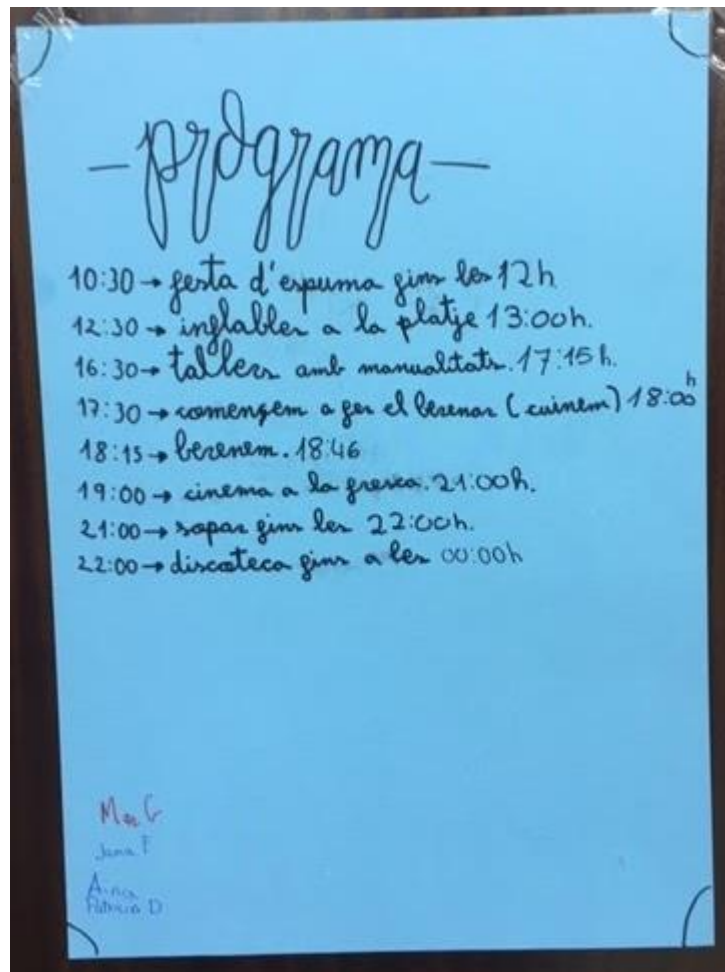 - programa -
10:30 → festa d'espuma fins les 12h
12:30 → inflables a la platje 13:00h.
16:30 → tallers amb manualitats. 17:15h.
17:30 → comensem a fer el berenar (cuinem) 18:00h
18:15 → berenem. 18:46
19:00 → cinema a la fresca. 21:00h.
21:00 → sopar fins les 22:00h.
22:00 → discoteca fins a les 00:00h
Mar G
Jana F
Aina
Patricia D